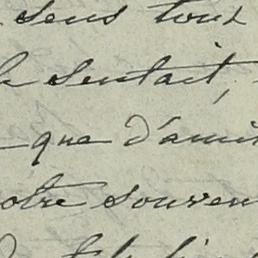 sens tout
la sentait,
que d'amit
otre souven